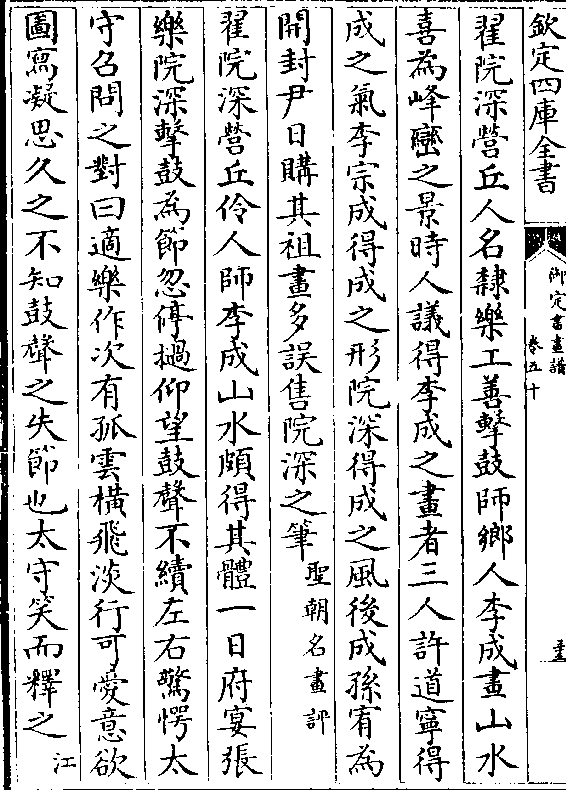 欽定四庫全書
御定書畫譜
卷五十
翟院深營丘人名隸樂工善擊鼓師鄉人李成畫山水
喜為峰巒之景時人議得李成之畫者三人許道寧得
成之氣李宗成得成之形院深得成之風後成孫宥為
開封尹日購其祖畫多誤售院深之筆聖朝名畫評
翟院深營丘伶人師李成山水頗得其體一日府宴張
樂院深擊鼓為節忽停撾仰望鼓聲不續左右驚愕太
守召問之對曰適樂作次有孤雲橫飛淡行可愛意欲
圖寫凝思久之不知鼓聲之失節也太守笑而釋之江